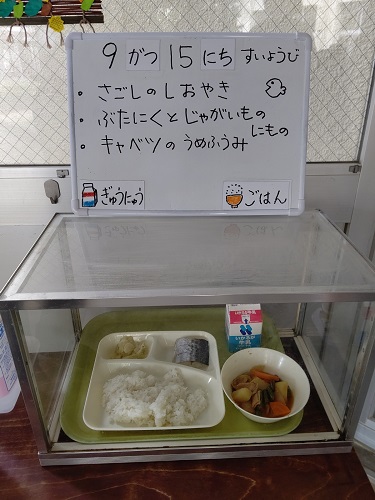 9がつ15にち すいようび
・さごしのしおやき
・ぶたにくとじゃがいものにもの
・キャベツのうめふうみ
ぎゅうにゅう ごはん